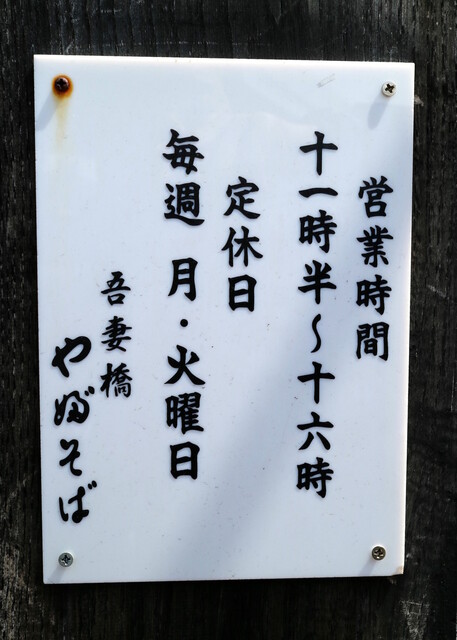 営業時間
十一時半～十六時
定休日
毎週 月・火曜日
吾妻橋
やぶそば